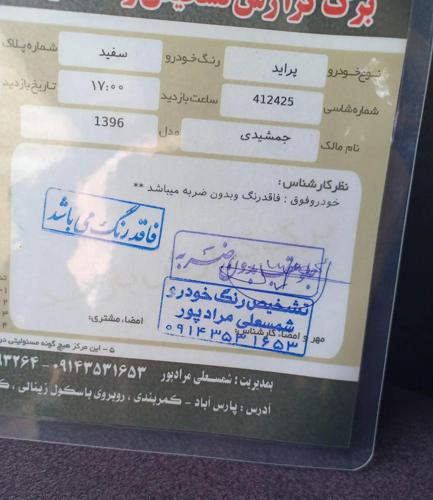 برگ گزارش تشخیص ر
نوع خودرو پراید رنگ خودرو سفید شماره پلاک
شماره شاسی 412425 ساعت بازدید ۱۷:۰۰ تاریخ بازدید
نام مالک جمشیدی مدل 1396
نظر کارشناس:
خودرو فوق : فاقدرنگ وبدون ضربه میباشد **
فاقد رنگ می باشد
بدون ضربه
تشخیص رنگ خودرو
شمسعلی مرادپور
۰۹۱۴۳۵۳۱۶۵۳
مهر و امضاء کارشناس: امضاء مشتری:
۵ - این مرکز هیچ گونه مسئولیتی در
بمدیریت : شمسعلی مرادپور ۰۹۱۴۳۵۳۱۶۵۳ - ۳۲۶۴
آدرس : پارس آباد - کمربندی ، روبروی باسکول زینالی ،